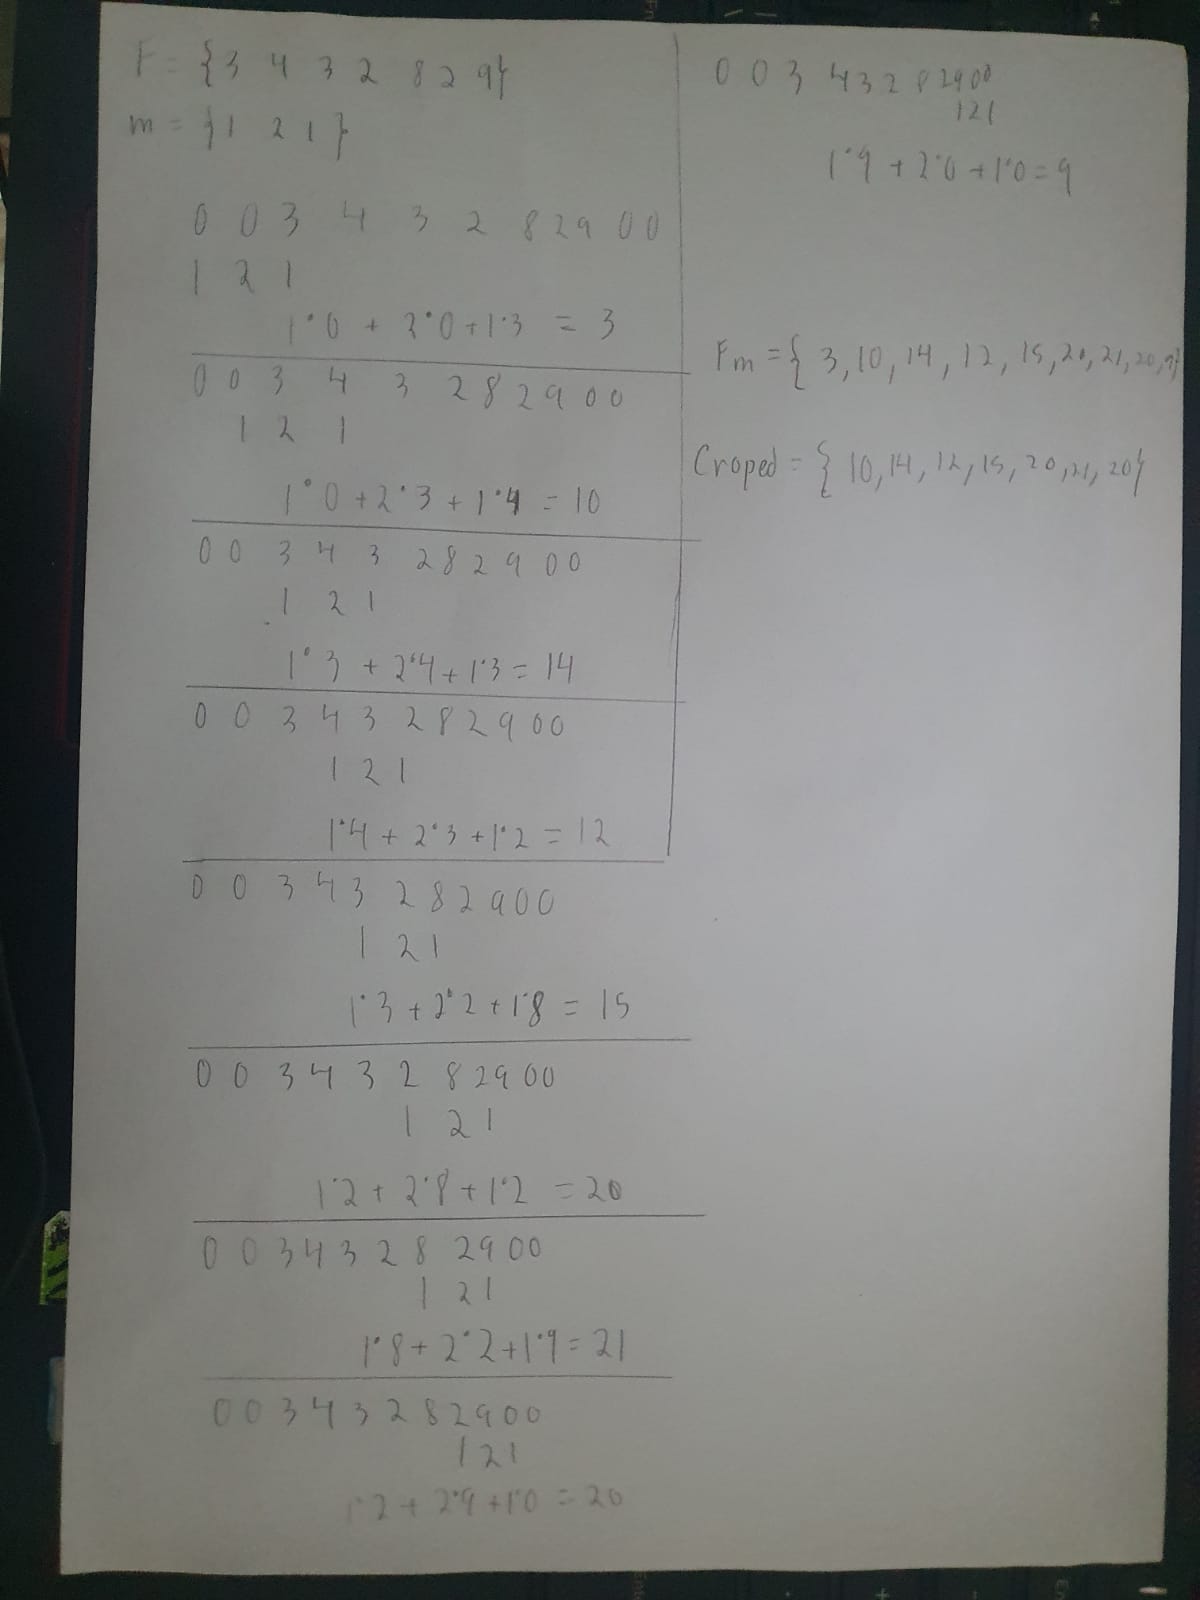 F = {3 4 3 2 8 2 9}
m = {1 2 1}
0 0 3 4 3 2 8 2 9 0 0
1 2 1
1·0 + 2·0 + 1·3 = 3
0 0 3 4 3 2 8 2 9 0 0
1 2 1
1·0 + 2·3 + 1·4 = 10
0 0 3 4 3 2 8 2 9 0 0
1 2 1
1·3 + 2·4 + 1·3 = 14
0 0 3 4 3 2 8 2 9 0 0
1 2 1
1·4 + 2·3 + 1·2 = 12
0 0 3 4 3 2 8 2 9 0 0
1 2 1
1·3 + 2·2 + 1·8 = 15
0 0 3 4 3 2 8 2 9 0 0
1 2 1
1·2 + 2·8 + 1·2 = 20
0 0 3 4 3 2 8 2 9 0 0
1 2 1
1·8 + 2·2 + 1·9 = 21
0 0 3 4 3 2 8 2 9 0 0
1 2 1
1·2 + 2·9 + 1·0 = 20
0 0 3 4 3 2 8 2 9 0 0
1 2 1
1·9 + 2·0 + 1·0 = 9
Fm = { 3, 10, 14, 12, 15, 20, 21, 20, 9}
Croped = { 10, 14, 12, 15, 20, 21, 20}